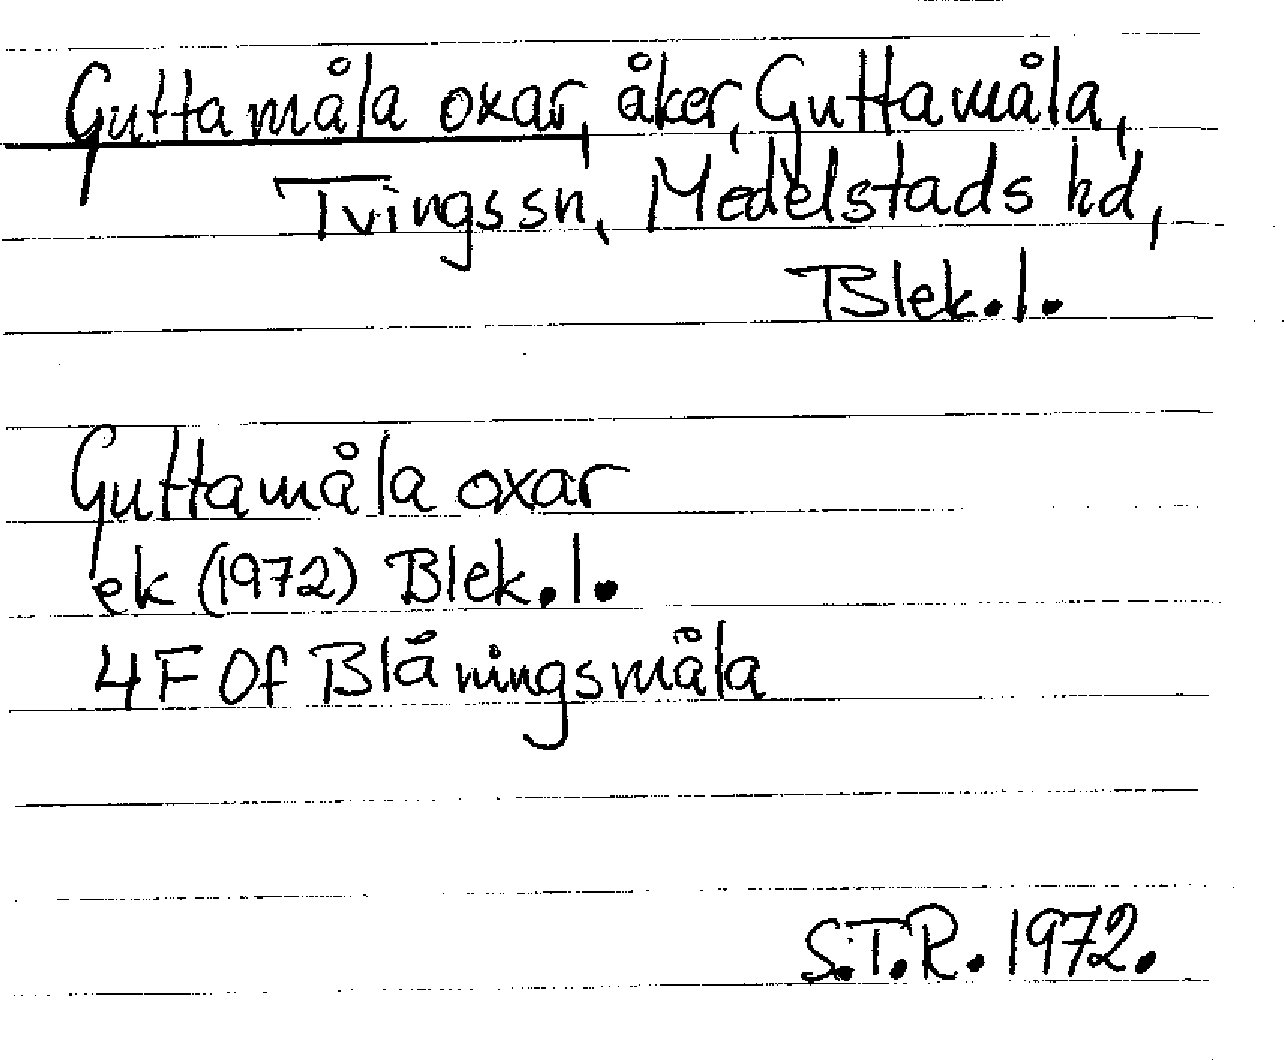 Guttamåla oxar, åker, Guttamåla,
Tvings sn, Medelstads hd,
Blek. l.
Guttamåla oxar
ek (1972) Blek. l.
4 F 0f Blåningsmåla
S.T.R. 1972.